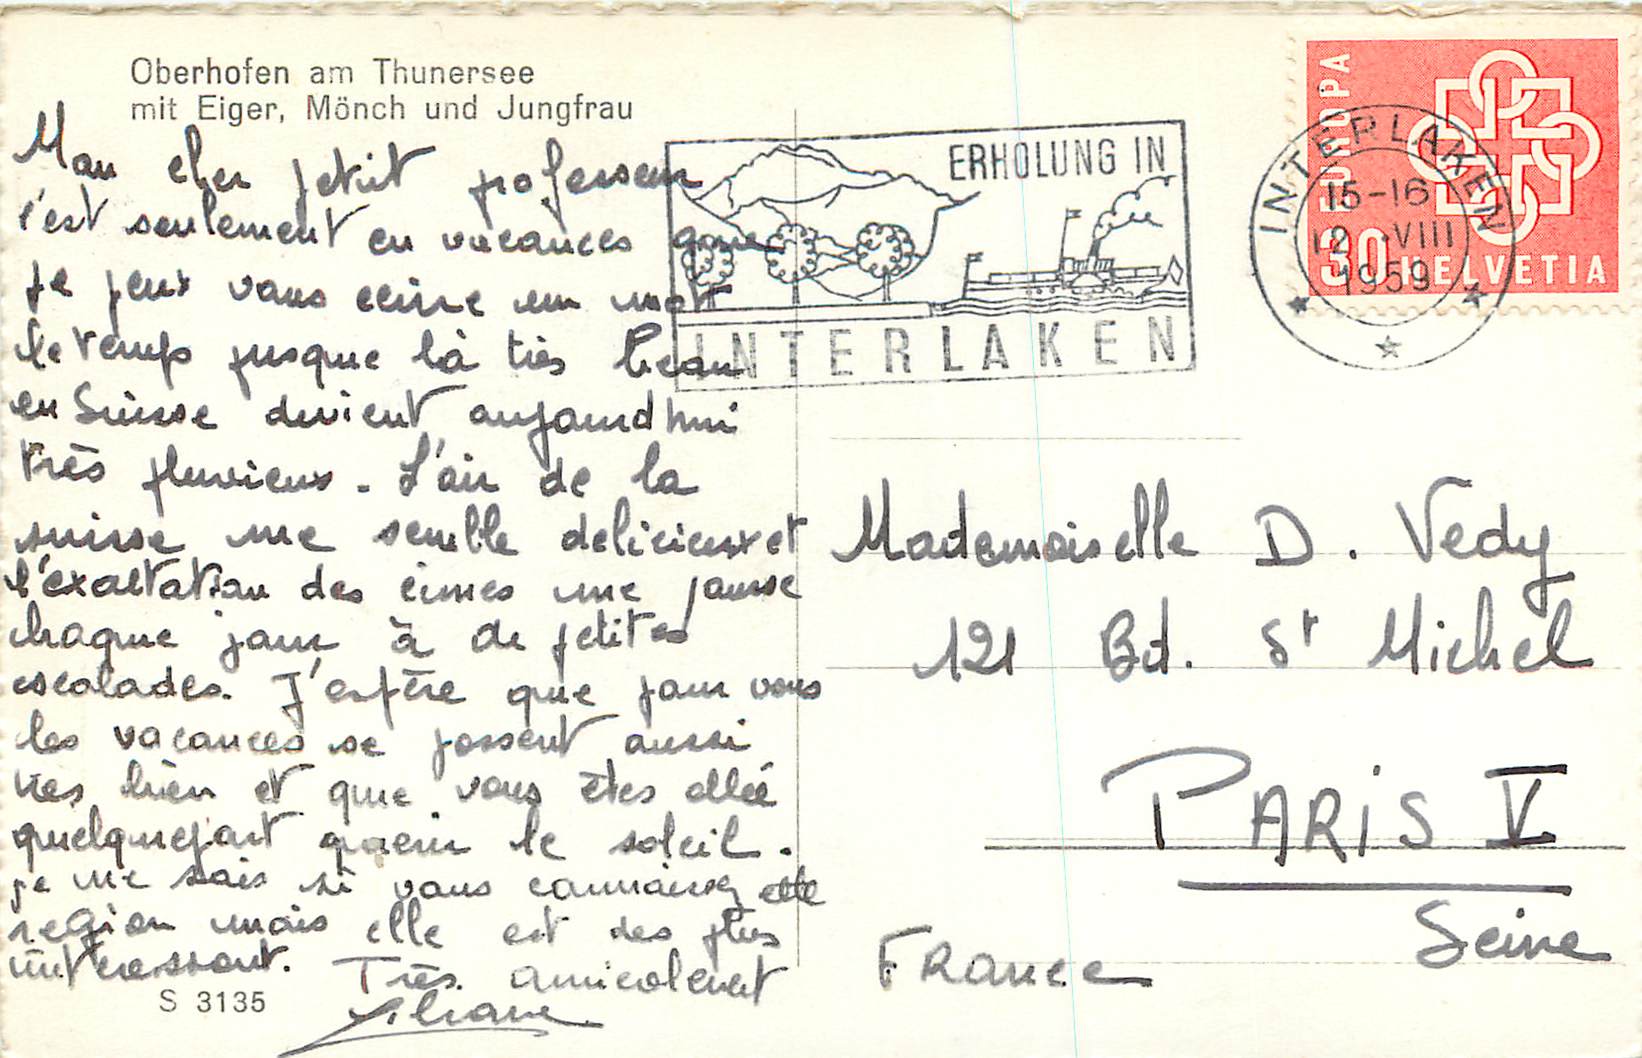 Oberhofen am Thunersee
mit Eiger, Mönch und Jungfrau
Mon cher petit professeur
c'est seulement en vacances que
je peux vous ecrire un mot
le temps jusque là très beau
en Suisse devient aujourd'hui
très pluvieux. L'air de la
suisse me semble delicieux et
l'exaltation des cimes me pousse
chaque jour à de petites
escalades. J'espère que pour vous
les vacances se passent aussi
tres bien et que vous êtes allée
quelquepart quérir le soleil.
je ne sais si vous connaissez cette
region mais elle est des plus
interessant. Très amicalement
Liliane
S 3135
ERHOLUNG IN
INTERLAKEN
INTERLAKEN
15-16
12.VIII
1959
EUROPA
30 HELVETIA
Mademoiselle D. Vedy
121 Bd. St Michel
PARIS V
Seine
France